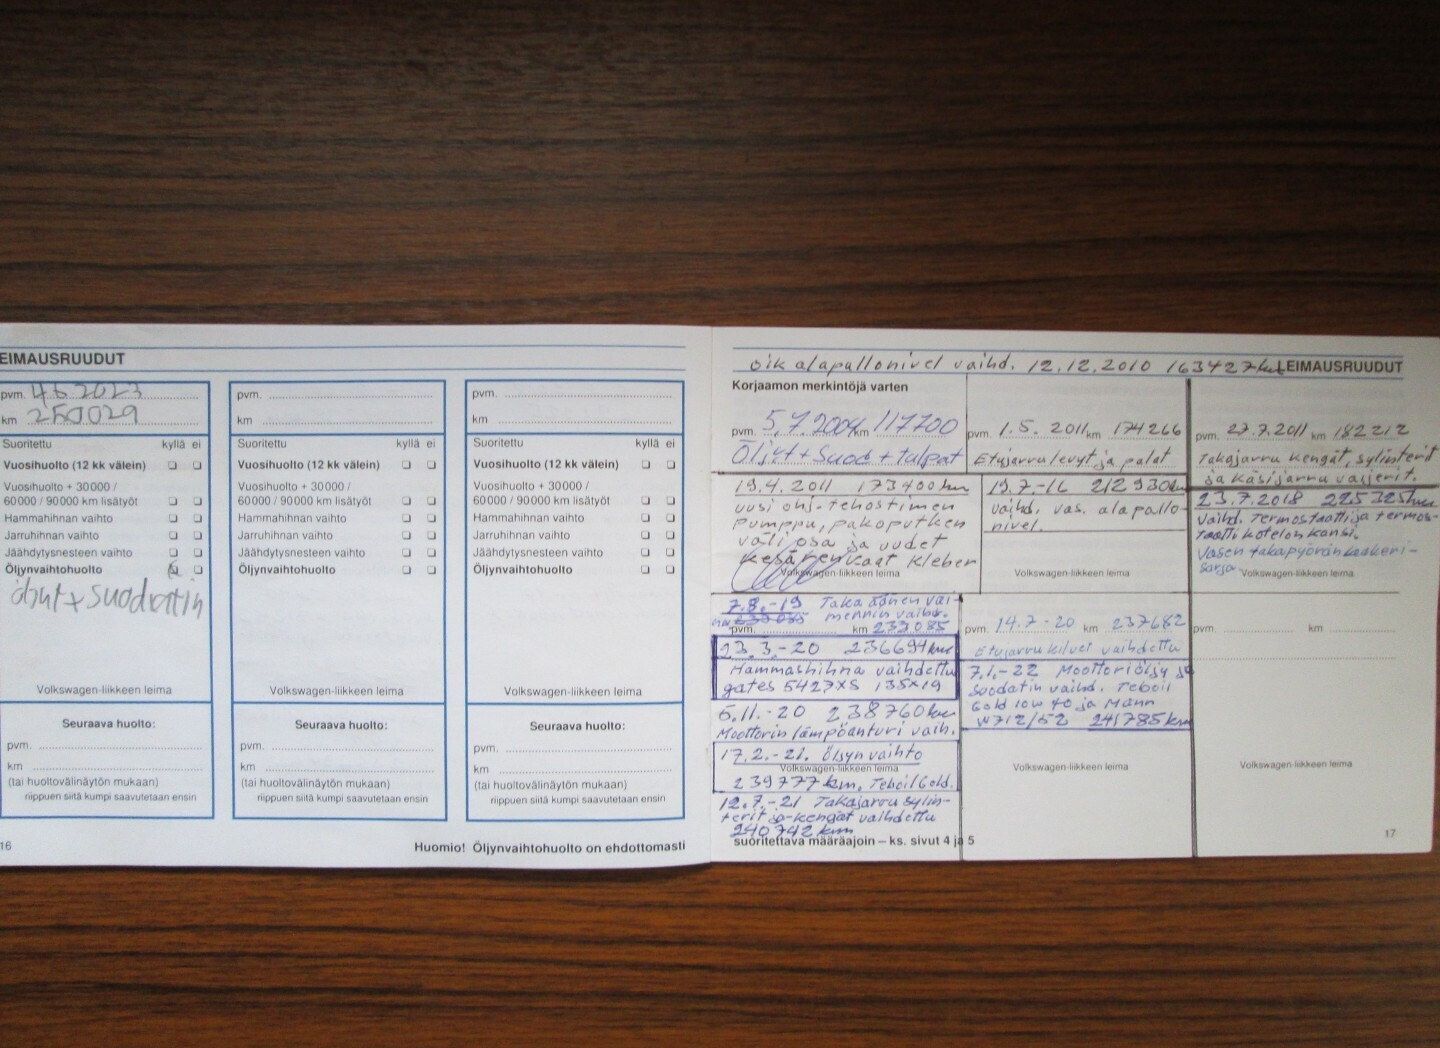 EIMAUSRUUDUT
pvm. 4.6 2023
km 250029
Suoritettu kyllä ei
Vuosihuolto (12 kk välein)
Vuosihuolto + 30 000 /
60 000 / 90 000 km lisätyöt
Hammahihnan vaihto
Jarruhihnan vaihto
Jäähdytysnesteen vaihto
Öljynvaihtohuolto
+ suodratin
Volkswagen-liikkeen leima
Seuraava huolto:
pvm.
km
(tai huoltovälinäytön mukaan)
riippuen siitä kumpi saavutetaan ensin
16
pvm.
km
Suoritettu kyllä ei
Vuosihuolto (12 kk välein)
Vuosihuolto + 30 000 /
60 000 / 90 000 km lisätyöt
Hammahihnan vaihto
Jarruhihnan vaihto
Jäähdytysnesteen vaihto
Öljynvaihtohuolto
Volkswagen-liikkeen leima
Seuraava huolto:
pvm.
km
(tai huoltovälinäytön mukaan)
riippuen siitä kumpi saavutetaan ensin
pvm.
km
Suoritettu kyllä ei
Vuosihuolto (12 kk välein)
Vuosihuolto + 30 000 /
60 000 / 90 000 km lisätyöt
Hammahihnan vaihto
Jarruhihnan vaihto
Jäähdytysnesteen vaihto
Öljynvaihtohuolto
Volkswagen-liikkeen leima
Seuraava huolto:
pvm.
km
(tai huoltovälinäytön mukaan)
riippuen siitä kumpi saavutetaan ensin
Huomio! Öljynvaihtohuolto on ehdottomasti
oik alapallonivel vaihd. 12.12.2010 163427 km LEIMAUSRUUDUT
Korjaamon merkintöjä varten
pvm. 5.7.2004 km 117700
Öljyt + Suod + tulpat
19.4.2011 173400 km
uusi ohj-tehostimen
pumppu, pakoputken
väliosa ja uudet
kesärenkaat Kleber
Volkswagen-liikkeen leima
pvm. 1.5. 2011 km 174266
Etujarrulevyt ja palat
19.7.-16 212930 km
vaihd. vas. alapallo-
nivel.
Volkswagen-liikkeen leima
pvm. 27.7.2011 km 182212
Takajarru kengät, sylinterit
ja käsijarru vaijerit.
23.7.2018 225325 km
vaihd. Termostaatti ja termos-
taatti kotelon kansi.
Vasen takapyörän laakeri-
sarja
Volkswagen-liikkeen leima
7.8.-19 Taka äänen vai-
mennin vaihd.
pvm. km 233085
23.3.-20 236694 km
Hammashihna vaihdettu
gates 5427XS 135x19
6.11.-20 238760 km
Moottorin lämpöanturi vaih.
17.2.-21. Öljyn vaihto
Volkswagen-liikkeen leima
239777 km. Teboil Gold.
12.7.-21 Takajarru sylin-
terit ja-kengät vaihdettu
240742 km
suoritettava määräajoin – ks. sivut 4 ja 5
pvm. 14.7-20 km 237682
Etujarrukilvet vaihdettu
7.1.-22 Moottoriöljy ja
suodatin vaihd. Teboil
Gold 10w 40 ja Mann
W712/52 241785 km
Volkswagen-liikkeen leima
pvm. km
Volkswagen-liikkeen leima
17